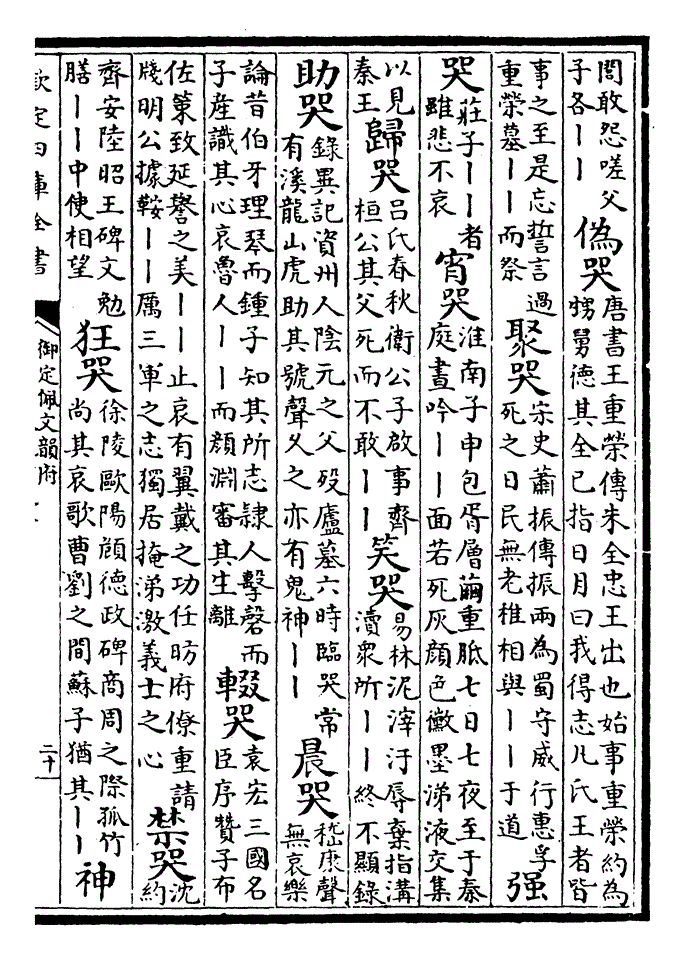 閭敢怨嗟父
子各丨丨
偽哭
唐書王重榮傳朱全忠王出也始事重榮約為
甥舅德其全已指日月曰我得志凡氏王者皆
事之至是忘誓言過
重榮墓丨丨而祭
聚哭
宋史蕭振傳振兩為蜀守威行惠孚
死之日民無老稚相與丨丨于道
强
哭
莊子丨丨者
雖悲不哀
宵哭
淮南子申包胥層繭重胝七日七夜至于秦
庭晝吟丨丨面若死灰顔色黴墨涕液交集
以見
秦王
歸哭
吕氏春秋衛公子啟事齊
桓公其父死而不敢丨丨
笑哭
易林泥滓汙辱棄指溝
瀆衆所丨丨終不顯錄
助哭
錄異記資州人陰元之父歿廬墓六時臨哭常
有溪龍山虎助其號聲久之亦有鬼神丨丨
晨哭
嵇康聲
無哀樂
論昔伯牙理琴而鍾子知其所志隷人擊磬而
子產識其心哀魯人丨丨而顔淵審其生離
輟哭
袁宏三國名
臣序贊子布
佐策致延譽之美丨丨止哀有翼戴之功任昉府僚重請
牋明公據鞍丨丨厲三軍之志獨居掩涕激義士之心
禁哭
沈
約
齊安陸昭王碑文勉
膳丨丨中使相望
狂哭
徐陵歐陽頠德政碑商周之際孤竹
尚其哀歌曹劉之間蘇子猶其丨丨
神
欽定四庫全書
御定佩文韻府
二十